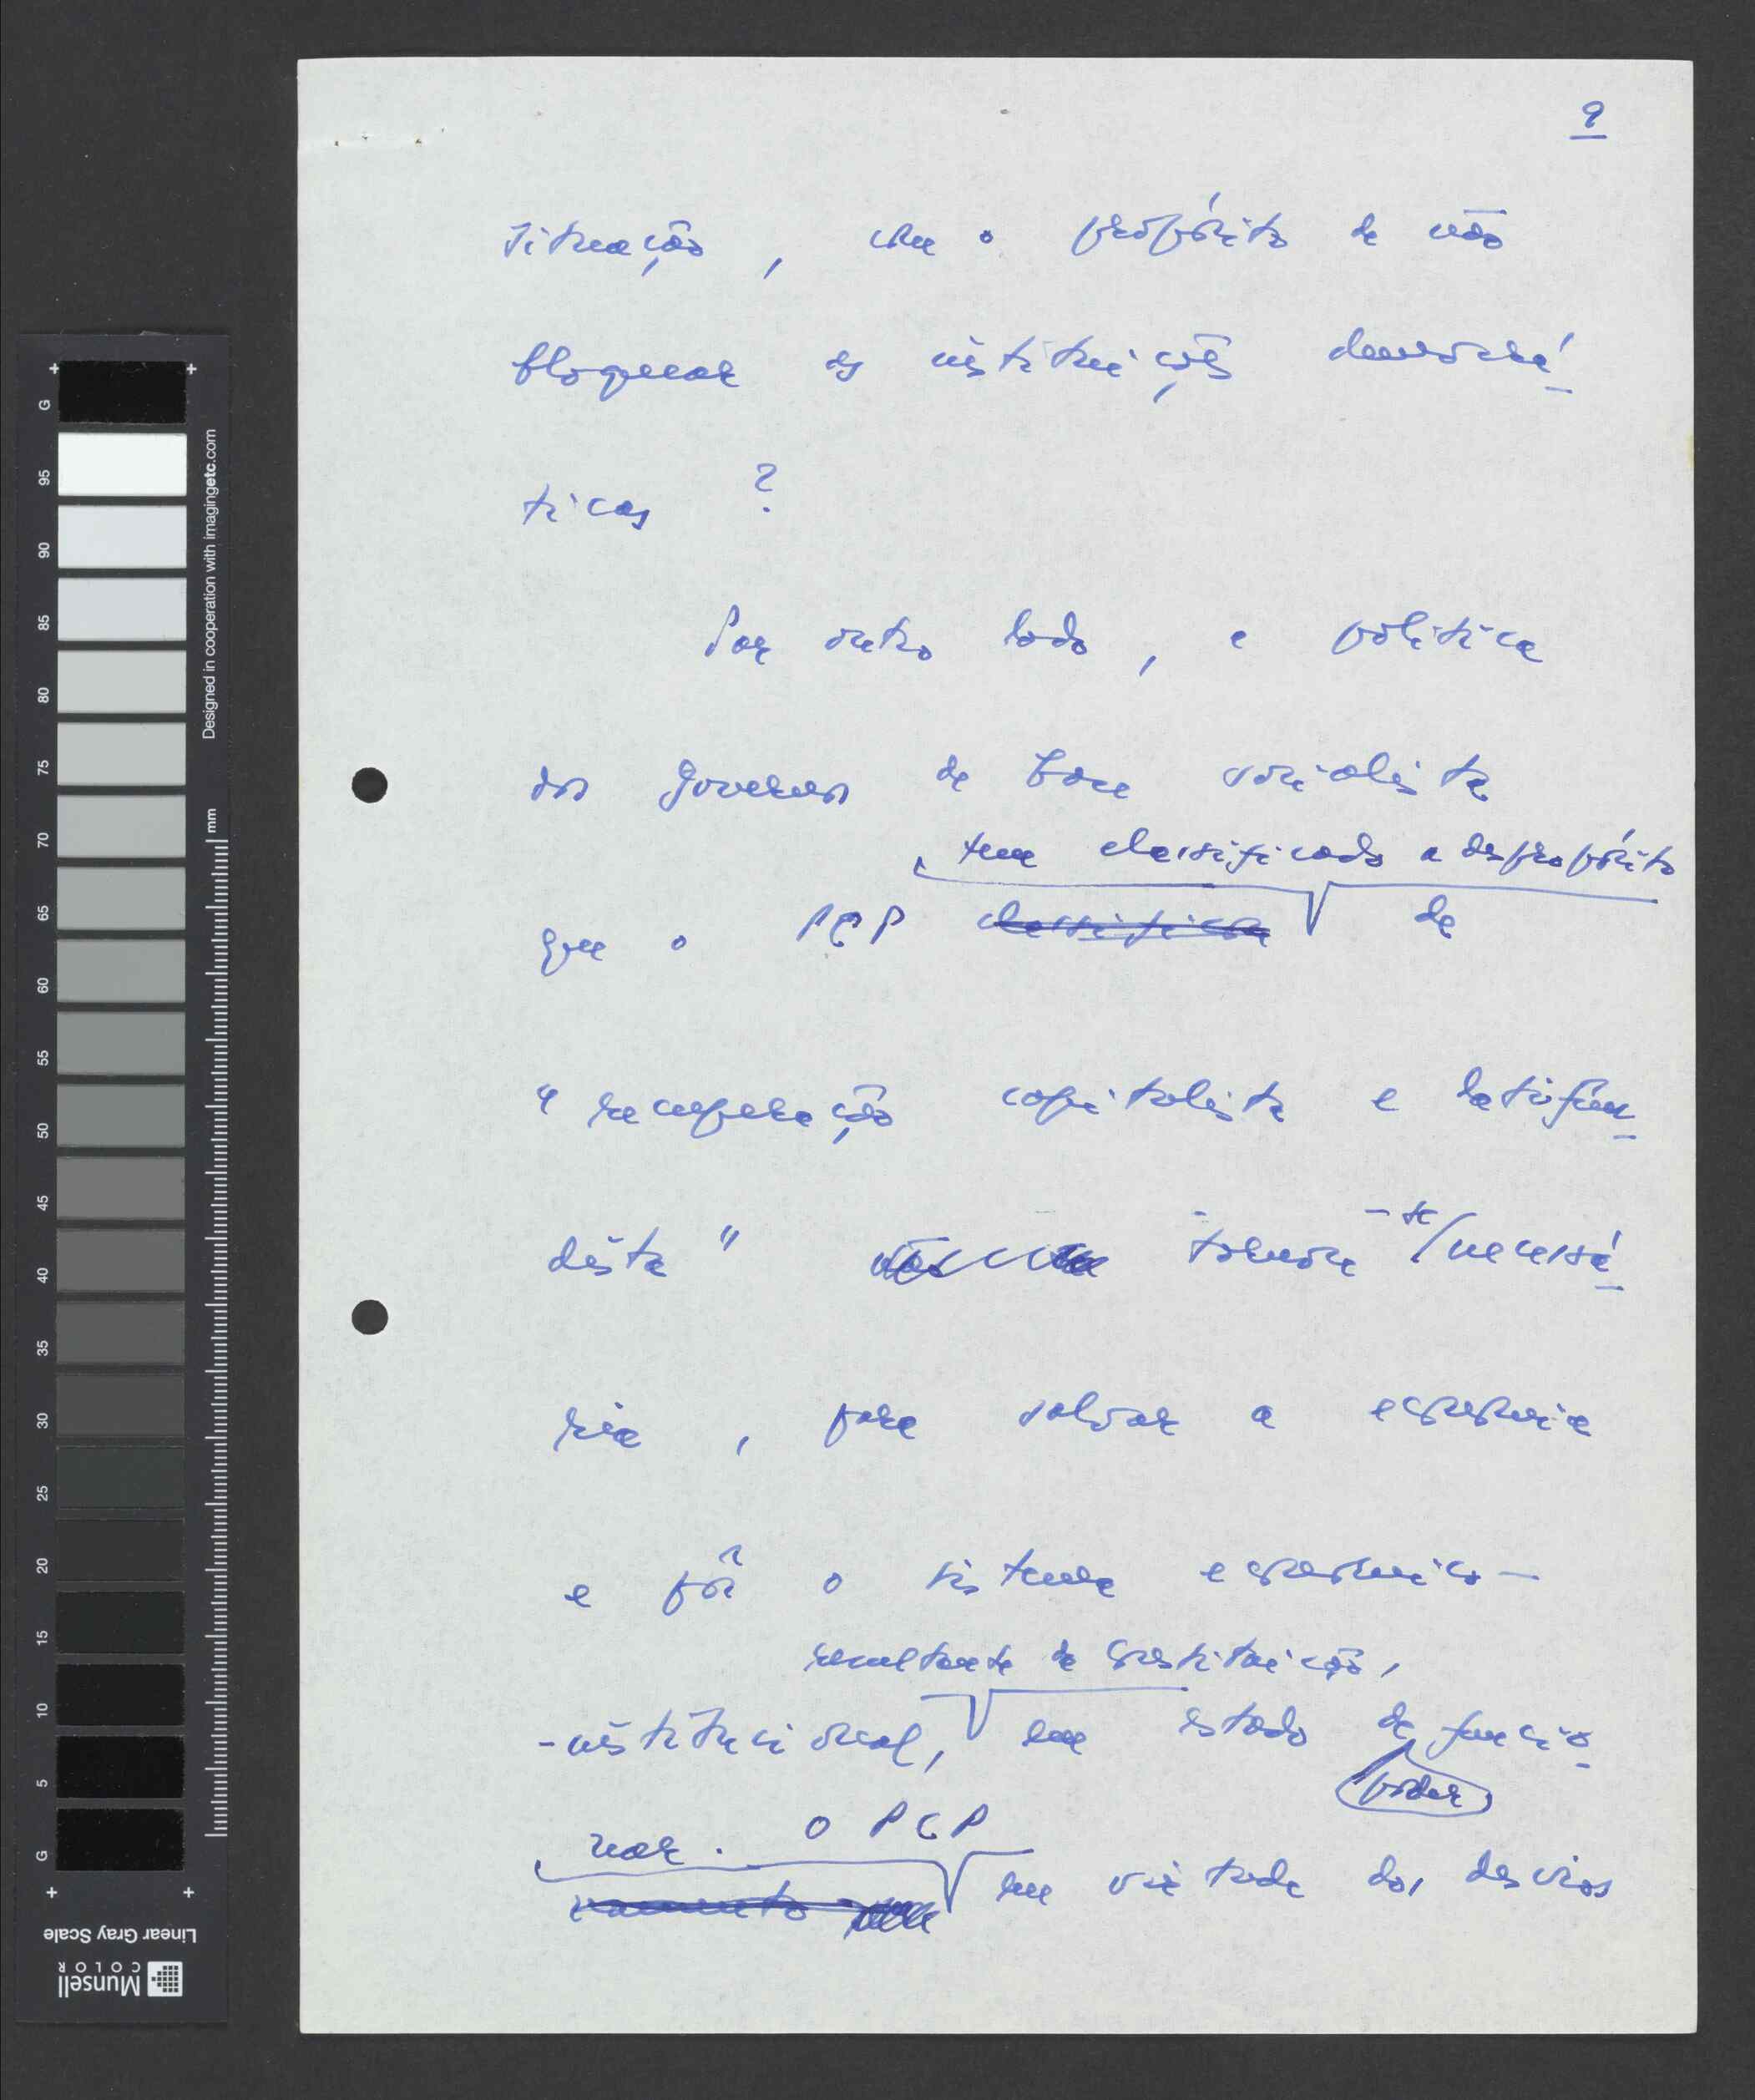 9
situação, com o propósito de não
bloquear as instituições democrá
ticas ?
Por outro lado, a política
dos governos de base socialista
tem classificado a despropósito
que o PCP classifica de
"recuperação capitalista e latifun
dista" tornou-se / necessá
ria, para salvar a economia
e pôr o sistema económico-
resultante da Constituição,
-institucional, em estado de funcio
poder
nar. O PCP
namento em virtude dos desvios
G
95
90
85
80
75
70
65
60
55
50
45
40
35
30
25
20
15
10
5
G
Designed in cooperation with imagingetc.com
mm
Linear Gray Scale
Munsell
COLOR